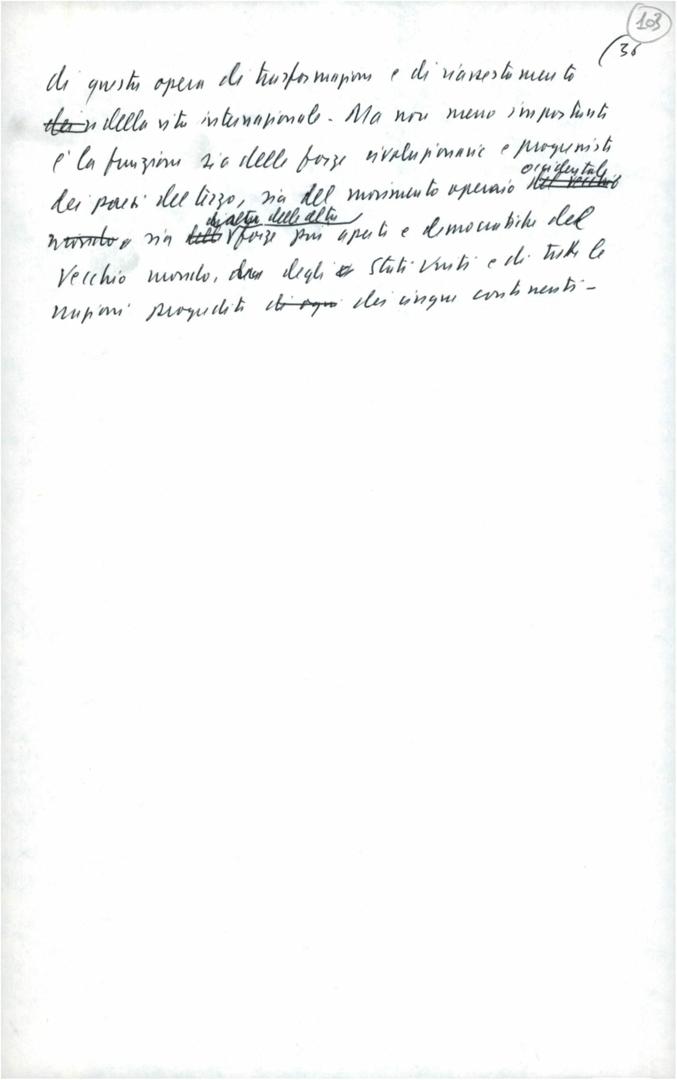 103
(36
di questa opera di trasformazione e di riassestamento
della vita internazionale. Ma non meno importante
è la funzione sia delle forze rivoluzionarie e progressiste
occidentale
dei paesi del terzo, sia del movimento operaio del vecchio
di altre delle altre
mondo e sia delle forze più aperte e democratiche del
Vecchio mondo, degli Stati Uniti e di tutte le
nazioni progredite di ogni dei cinque continenti-